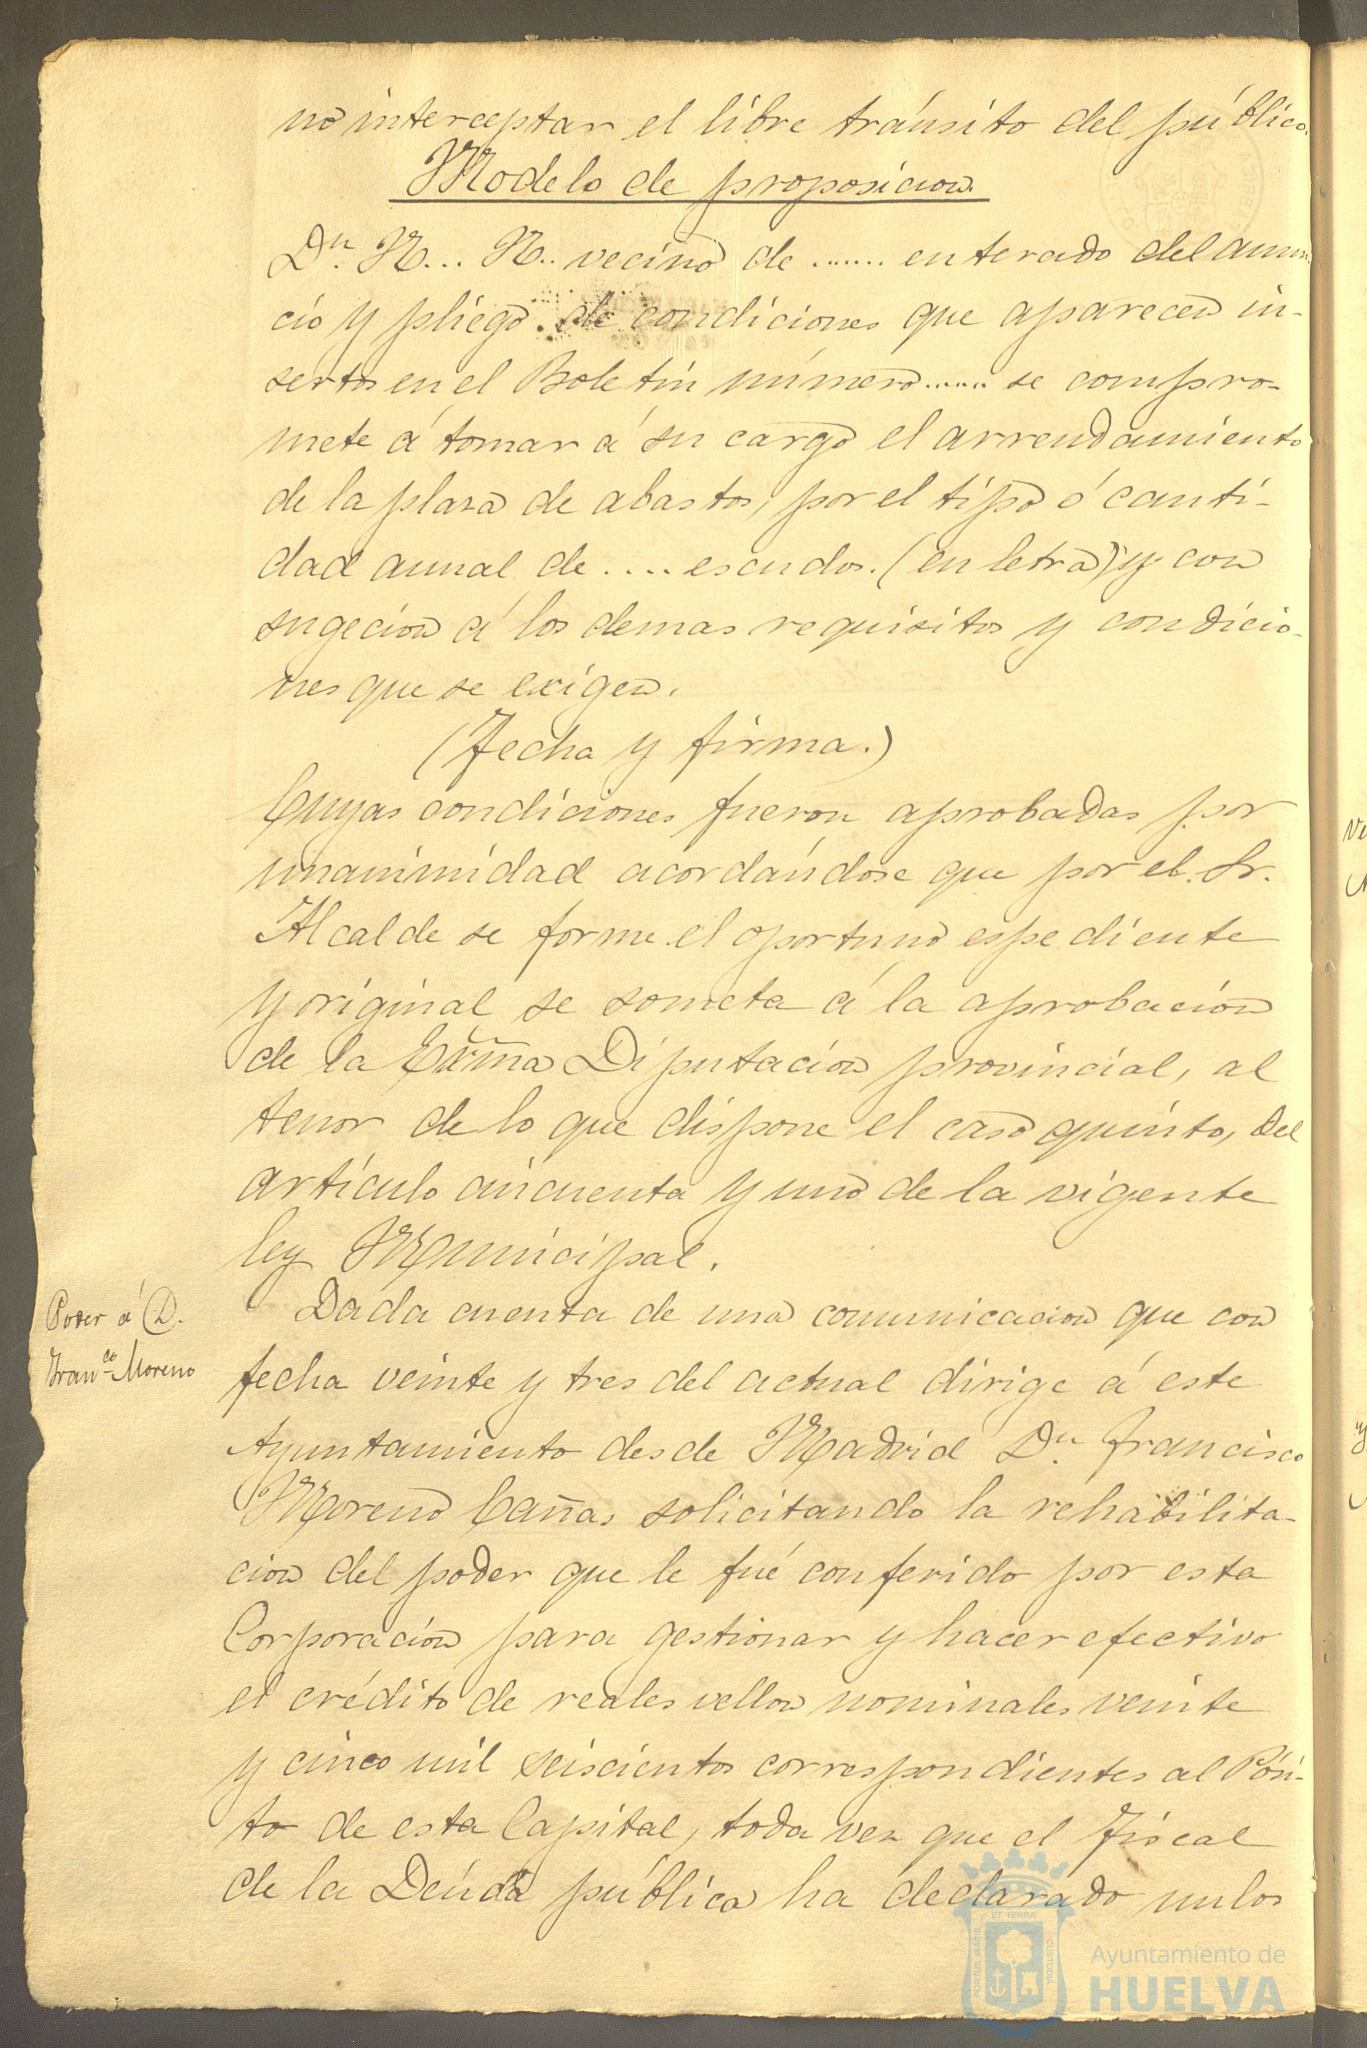 no interceptar el libre tránsito del público.
Modelo de proposicion.
Dn. N... N.. vecino de ....... enterado del anun-
cio y pliego de condiciones que aparecen in-
sertos en el Boletin número...... se compro-
mete á tomar á su cargo el arrendamiento
de la plaza de abastos, por el tipo ó canti-
dad anual de .... escudos. (en letra) y con
sugecion á los demas requisitos y condicio-
nes que se exigen.
(Fecha y firma.)
Cuyas condiciones fueron aprobadas por
unanimidad acordándose que por el Sr.
Alcalde se forme el oportuno espediente
y original se someta á la aprobacion
de la Exma Diputacion provincial, al
tenor de lo que dispone el caso quinto, del
artículo cincuenta y uno de la vigente
ley Municipal.
Poder á D.
Franco Moreno
Dada cuenta de una comunicacion que con
fecha veinte y tres del actual dirige á este
Ayuntamiento desde Madrid Dn. Francisco
Moreno Cañas solicitando la rehabilita-
cion del poder que le fué conferido por esta
Corporacion para gestionar y hacer efectivo
el crédito de reales vellon nominales veinte
y cinco mil seiscientos correspondientes al Pósi-
to de esta Capital, toda vez que el Fiscal
de la Deuda pública ha declarado nulos
PORTUS MARIS
ET TERRA
CUSTODIA
Ayuntamiento de
HUELVA